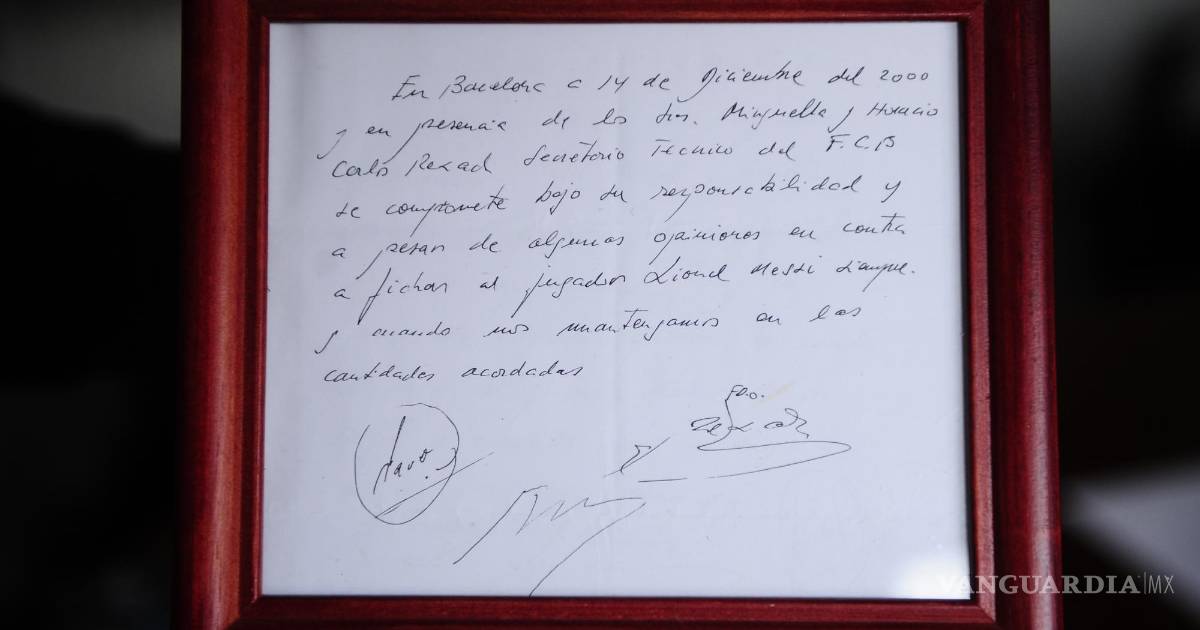 En Barcelona a 14 de Diciembre del 2000
y en presencia de los Sres. Minguella y Horacio
Carlos Rexach Secretorio Tecnico del F.C.B
se compromete bajo su responsabilidad y
a pesar de algunas opiniones en contra
a fichar al jugador Lionel Messi siempre.
y cuando nos mantengamos en las
cantidades acordadas
Fdo.
Rexach
VANGUARDIA|MX